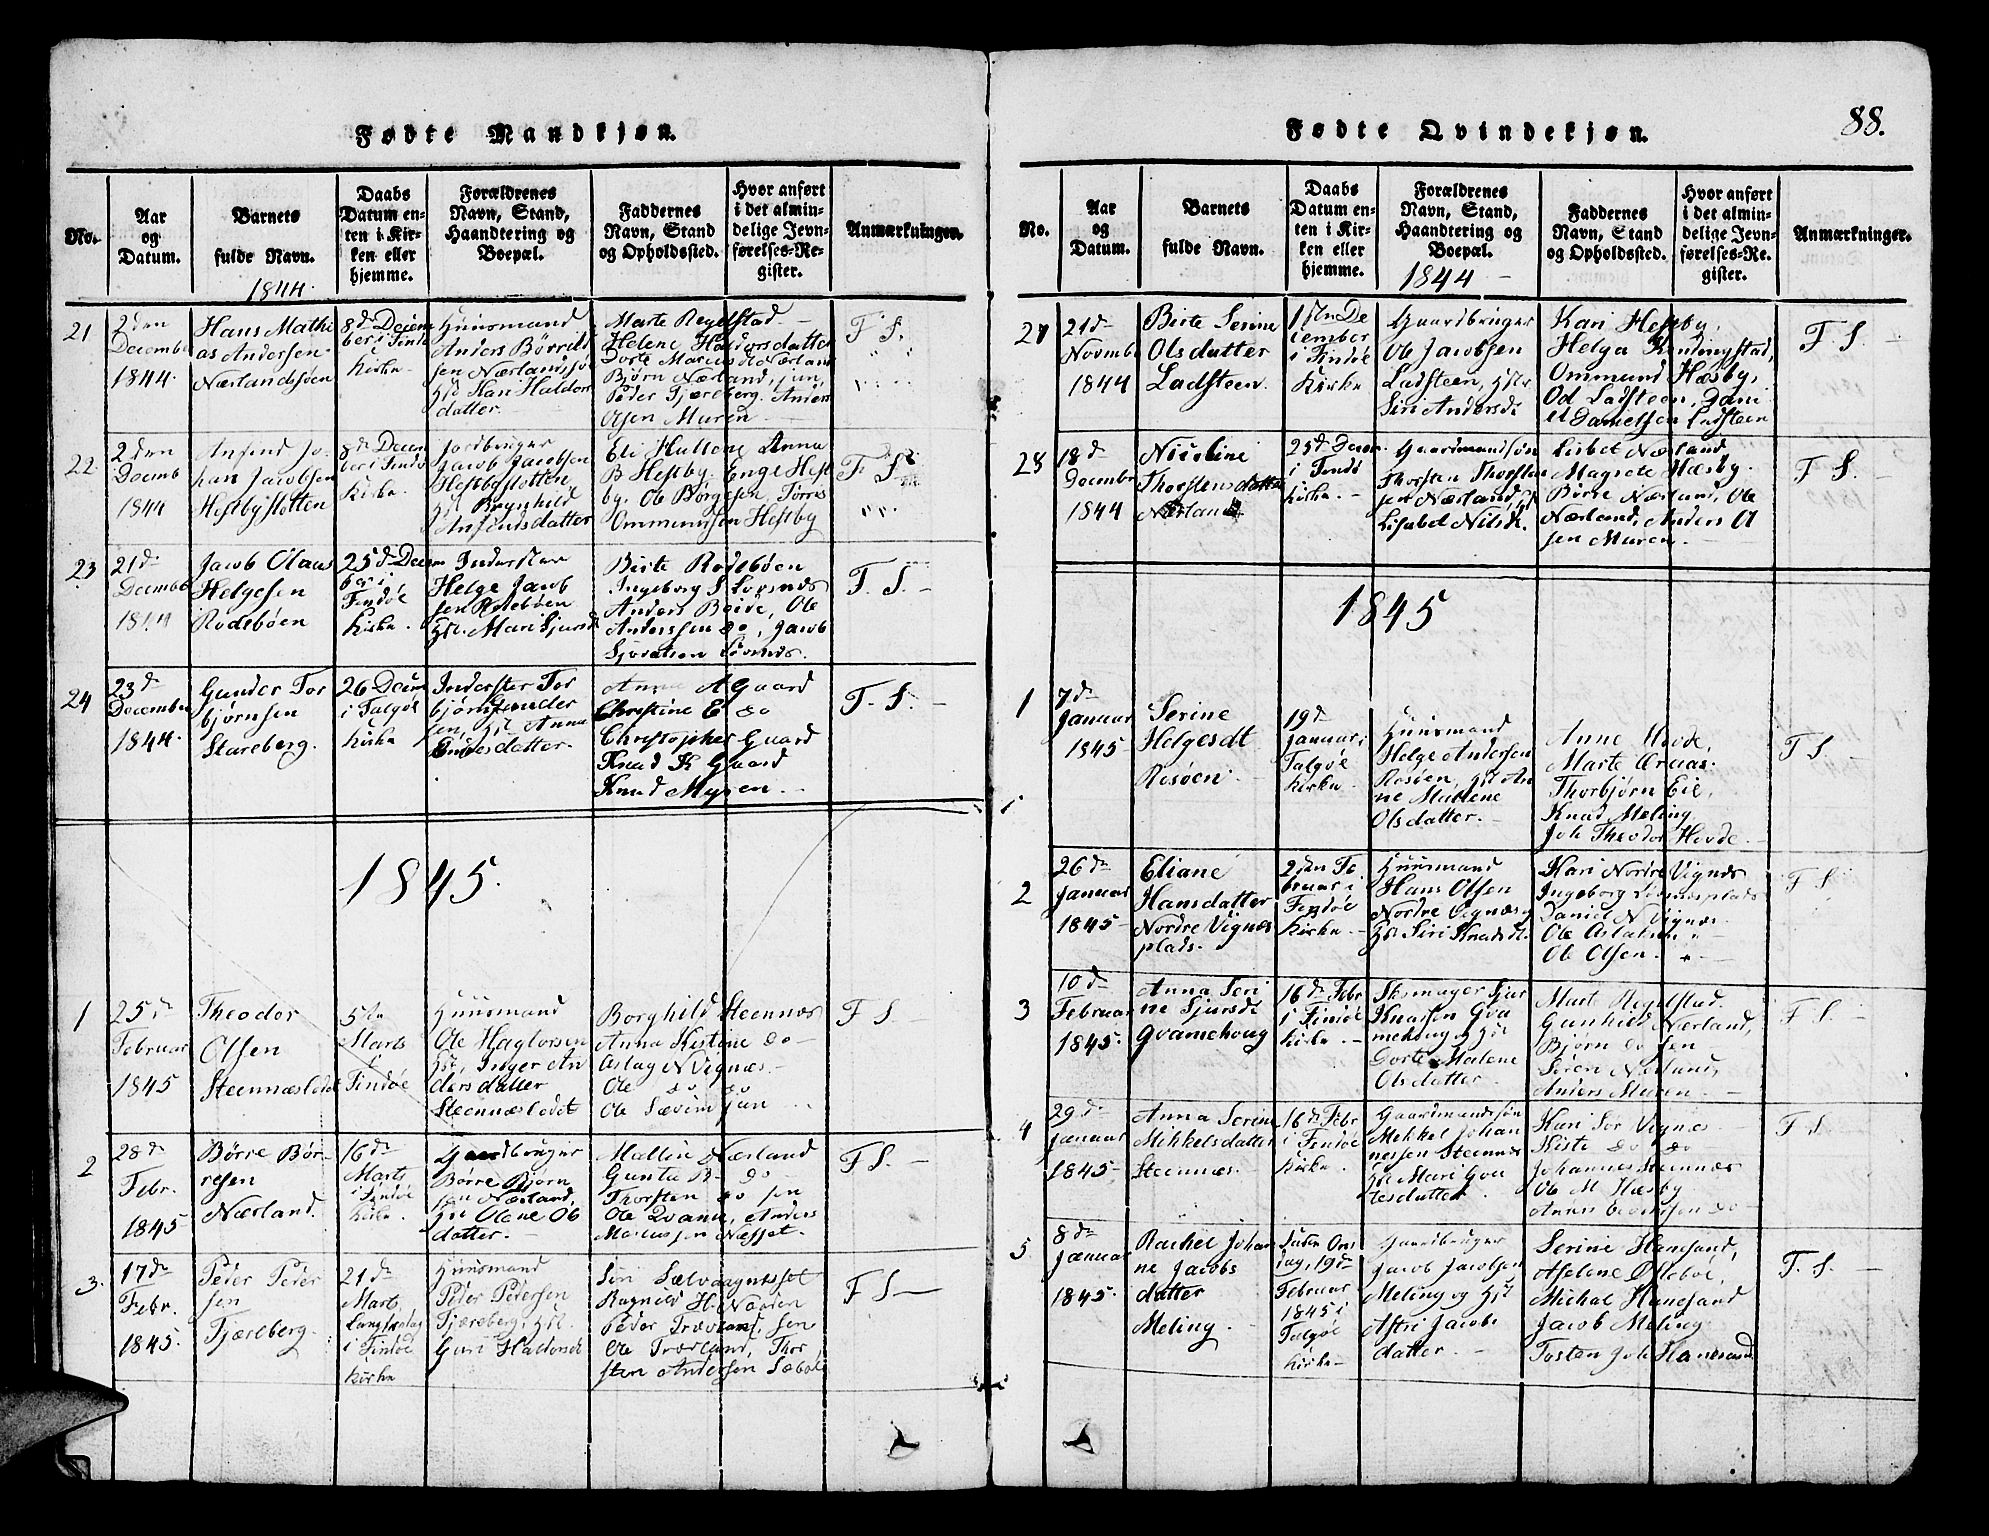 Fødte Mandkjøn.
No.
Aar
og
Datum.
Barnets
fulde Navn.
1844.
Daabs
Datum en-
ten i Kir-
ken eller
hjemme.
Forældrenes
Navn, Stand,
Haandtering og
Boepæl.
Faddernes
Navn, Stand
og Opholdssted.
Hvor anført
i det almin-
delige Jevn-
førelses-Re-
gister.
Anmærkninger.
21
2den
Decembr
1844.
Hans Mathi
as Andersen
Nærlandsøen
8de Decem
ber i Find
Kirke.
Huusmand
Anders Börrild
sen Nærlandsö
Hst Kari Haldors
datter.
Marte Regelstad.
Helene Haldorsdatter
Dorte Marcusd. Nærland
Bjørn Nærland, jun,
Peder Fjæreberg. Anders
Olsen Muren
F S. —
22
2den
Decemb
1844
Ansind Jo-
han Jacobsen
Hestbystotten
8de Decem
ber i Findö
Kirke.
Jordbruger
Jacob Jacobsen
Hestbystotten
Hst Brynhild
Ansindsdatter
Eli Anna
B Hestby. Enge Hest
by. Ole Börgesen, Törres
Ommundsen Hestby
F S.
23
21de
Decemb
1844
Jacob Olaus
Helgesen
Rodebøen
25de Decem
ber i
Findöe
Kirke.
Inderster
Helge Jacob
sen Rodebøen
Hst. Mari Sjursd
Birte Rodebøen
Ingeborg S
Anders Boide, Ole
Anderssen do, Jacob
F. S. —
24
23de
December
1844.
Gunder Tor
bjørnsen
Stareberg.
26 Decem
i Talgöe
Kirke
Inderster Tor
bjørn Gunder
sen, Hst Anna
Endesdatter.
Anna A Gaard
Christine E do
Christopher Gaard
Knud K Gaard
Knud Myren. —
F. S. —
1845.
1
25de
Februar
1845
Theodor
Olsen
Steennæslodet
5te
Marts
i
Findöe
Huusmand
Ole Hagtorsen
Hst, Inger An
dersdatter
Steennæslodet
Borghild Steennæs
Anna Kistine do —
Aslag N Vignæs —
Ole do do
Ole Sævim jun
F S. —
2
28de
Febr.
1845
Börre Bör-
resen
Nærland.
16de
Marts
i Findöe
Kirke.
Gaardbruger
Börre Bjørn
sen Nærland,
Hst Olene Ols
datter. —
Mallin Nærland
Gunla B- do
Thorsten do sen
Ole Qvame, Anders
Marcussen Næsset.
F S. —
3.
17de
Febr.
1845.
Peder Peder
sen
Fjærebergs.
21de
Marts
i Findöe
Kirke
Huusmand
Peder Pedersen
Fjæreberg, Hst.
Guri Haldorsd
Siri
Ragnild H. Naaden
Peder Trævland, sen
Ole Trævland, Thor
sten Andersen Sæbøe
F S —
Fødte Qvindekjøn.
88.
No.
Aar
og
Datum.
Barnets
fulde Navn.
Daabs
Datum en-
ten i Kir-
ken eller
hjemme.
Forældrenes
Navn, Stand,
Haandtering og
Boepæl.
1844 —
Faddernes
Navn, Stand
og Opholdssted.
Hvor anført
i det almin-
delige Jevn-
førelses-Re-
gister.
Anmærkninger.
27
21de
Novmbr
1844
Birte Serine
Olsdatter
Ladsteen.
1ste De
cember
i Findöe
Kirke
Gaardbruger
Ole Jacobsen
Ladsteen, Hstr
Siri Andersd:
Kari Hestby,
Helga Kindingstad,
Ommund Hæsby,
Od Ladsteen, Dani
el Danielsen Ladsteen
F S. —
28
18de
Decembr
1844
Nicoline
Thorstensdatter
Nærland
25de Decem
i Findö
Kirke. —
Gaardmandssøn
Thorsten Thorsten
sen Nærland, Hst
Lisabet Nilsd.
Lisbet Nærland
Magrete Hæsby.
Börre Nærland, Ole
Nærland, Anders Ol
sen Muren. —
F S. —
1845
1
7de
Januar
1845
Serine
Helgesdt
Rosøen
19de
Januar i
Talgöe
Kirke.
Huusmand
Helge Andersen
Rosöen, Hst An
ne Malene
Olsdatter. —
Anne Hovde,
Marte Aruas.
Thorbjørn Eie,
Knud Meling
Joh Theodor Hovde. —
F S. —
2
26de
Januar
1845
Eliane
Hansdatter
Nordre Vignæs
plads.
2den Fe
bruar i
Findöe
Kirke. —
Huusmand
Hans Olsen
Nordre Vignæs og
Hst Siri Knudsd.
Kari Nordre Vignæs
Ingeborg plads
Daniel N Vignæs.
Ole Aslaksen
Ole Olsen. —
F S.
3
10de
Februar
1845.
Anna Seri
ne Sjursdr
Qvamehoug
16de Febr
i Findöe
Kirke. —
Skomager Sjur
Knutsen Qva
mehoug Hst
Dorte Malene
Olsdatter. —
Mart Regelstad.
Gunhild Nærland,
Bjørn do sen —
Sören Nærlund,
Anders Muren. —
F S. —
4
29de
Januar
1845
Anna Serine
Mikkelsdatter
Steennæs.
16de Febr
i Findöe
Kirke.
Gaardmandssøn
Mekkel Johan
nessen Steennæs
Hst Mari Gou
tesdatter. —
Kari Sör Vignæs
Kiste do do
Johannes Steennæs
Ole M Hæsby
do —
F S. —
5
8de
Januar
1845.
Rachel Johan
ne Jacobs
datter
Meling.
19de
Februar
1845 i
Talgöe
Kirke —
Gaardbruger
Jacob Jacobsen
Meling og Hst
Astri Jacobs
datter. —
Serine Hanesand,
Aselene Østebøe,
Michal Hanesand
Jacob Meling
Tosten Joh Hanesand
F. S. —